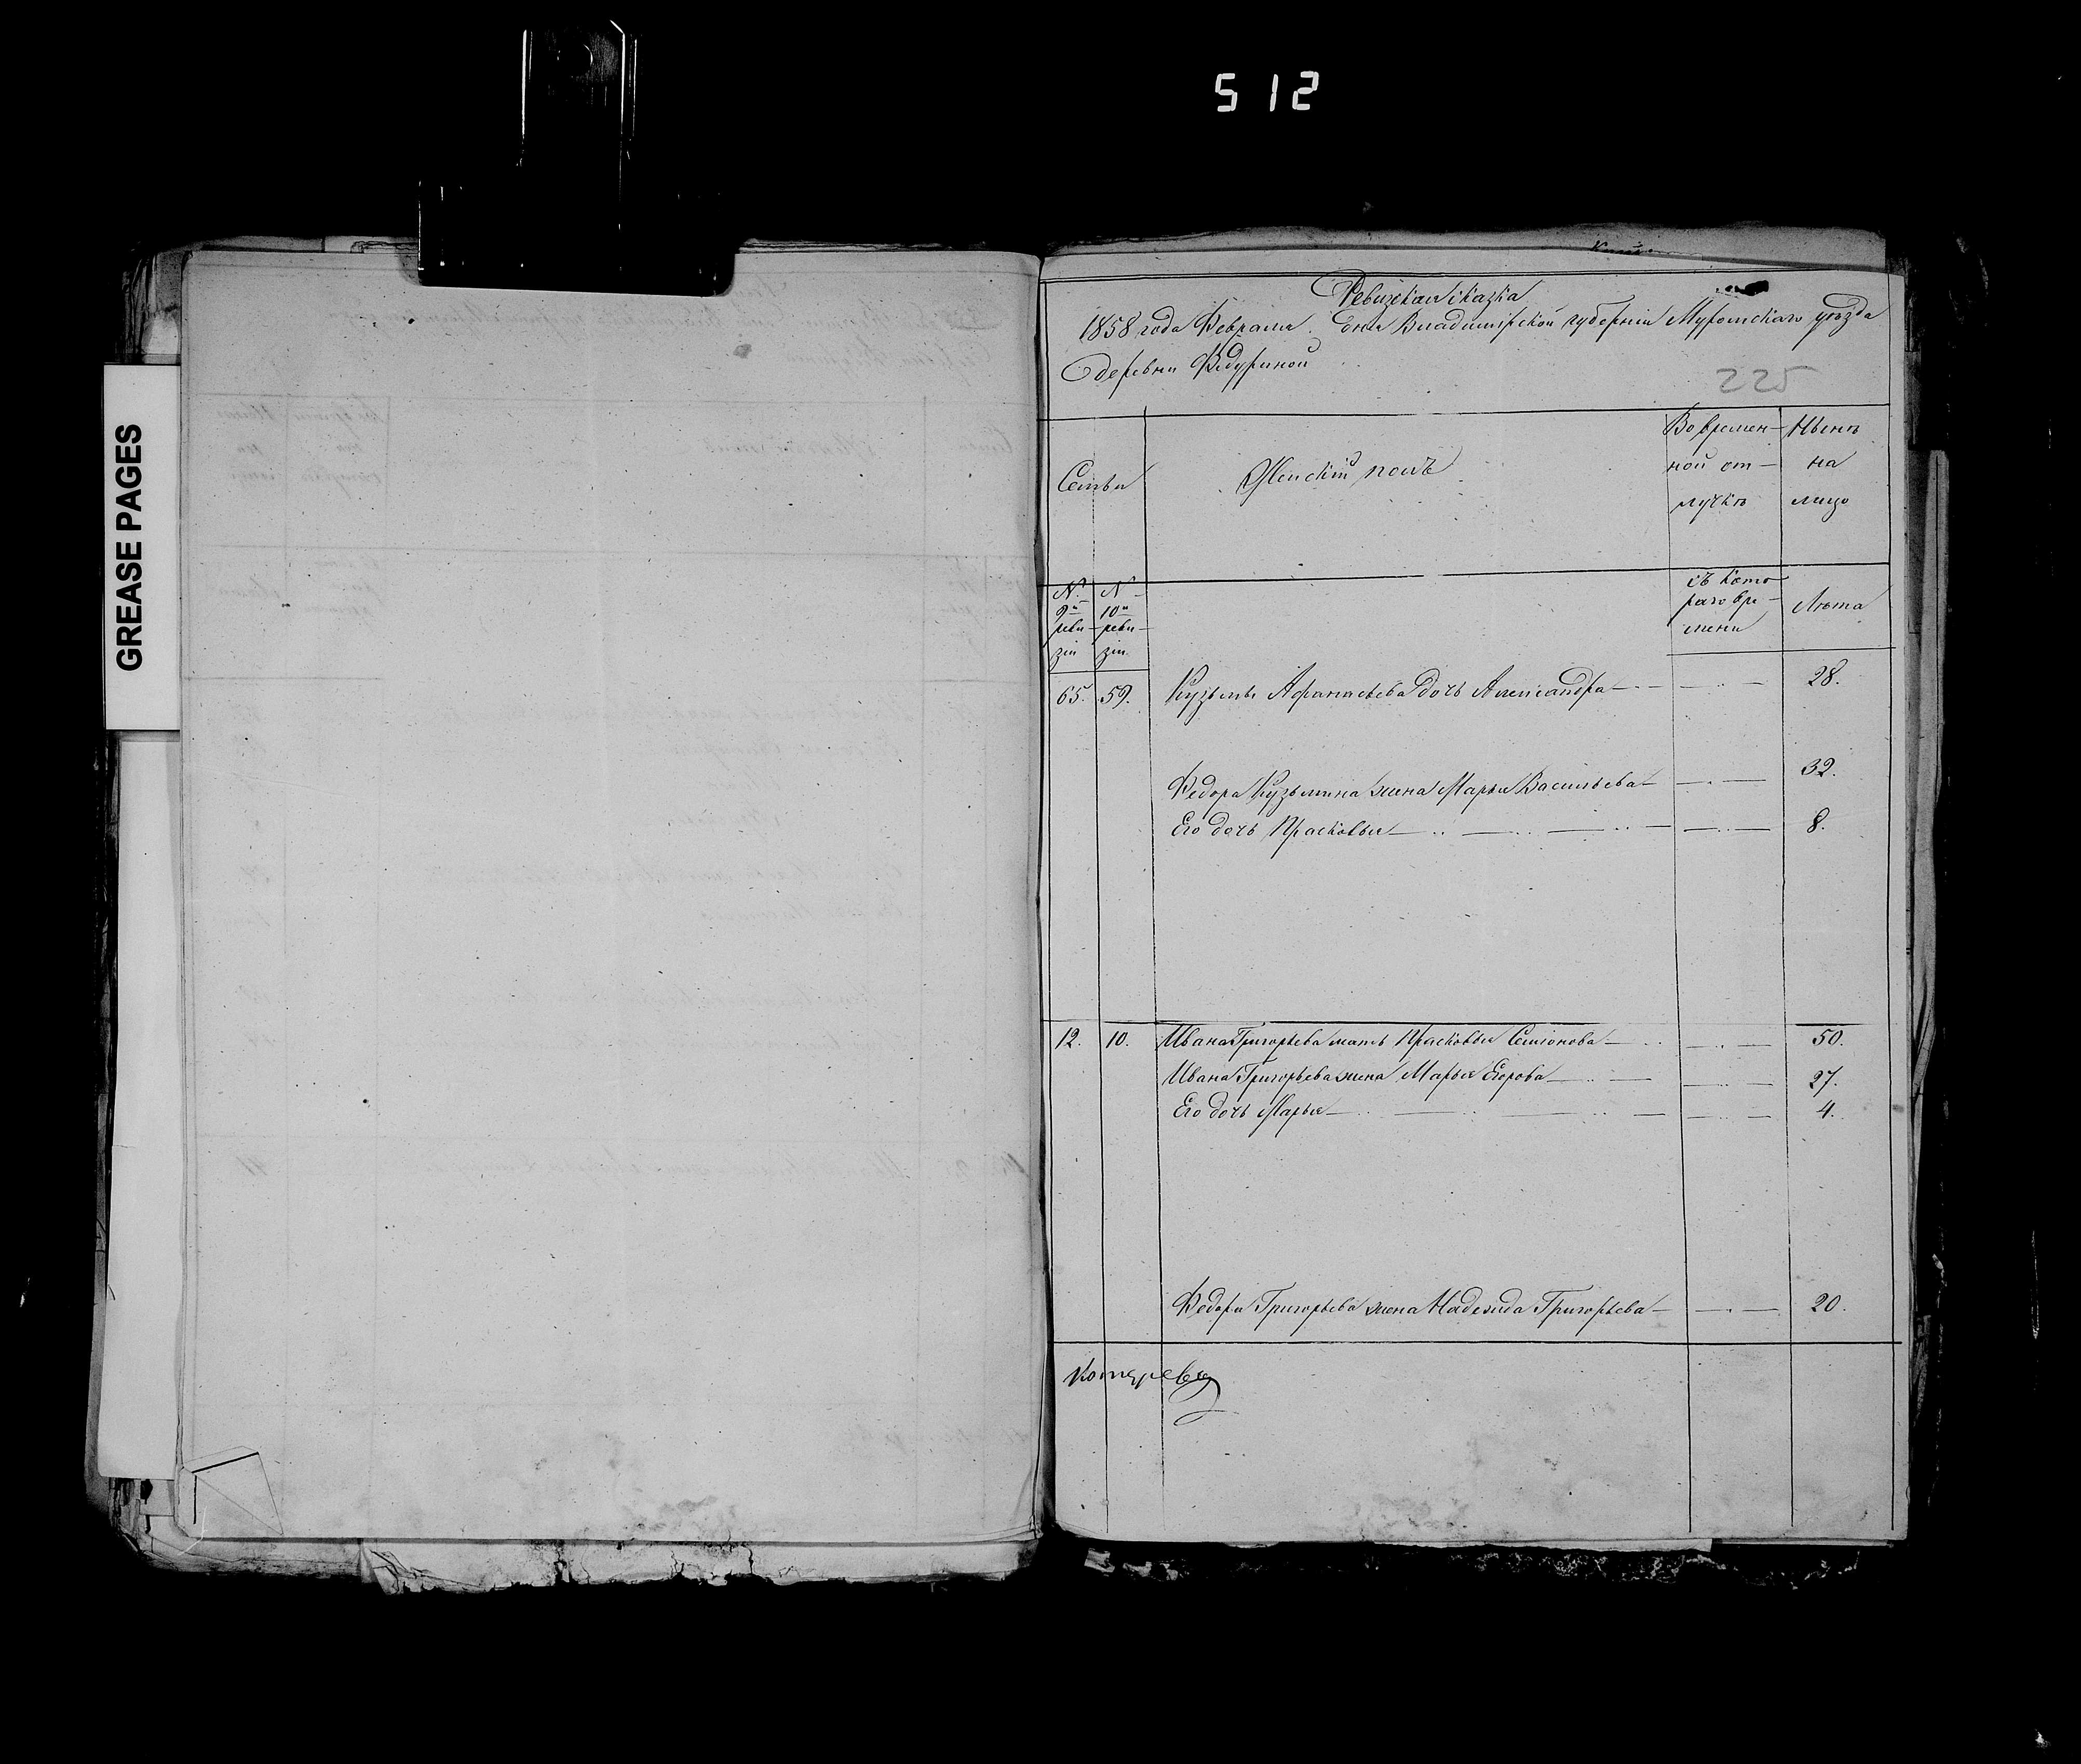 512
GREASE PAGES
Ревизская сказка
1858 года Февраля дня Владимирской губернiи Муромскаго уѣзда
деревни Федуриной
225
Семьи
Женскiй полъ
Во времен-
ной от-
лучкѣ
Нынѣ
на
лицо
№ 9й реви-зiи
№ 10й реви-зiи
съ кото-
раго вре-
мени
Лѣта
65. 59. Кузьмы Афанасьева дочь Александра 28.
Федора Кузьмина жена Марья Васильева 32.
Его дочь Прасковья 8.
12. 10. Ивана Григорьева мать Прасковья Семионова 50.
Ивана Григорьева жена Марья Егорова 27.
Его дочь Марья 4.
Федора Григорьева жена Надежда Григорьева 20.